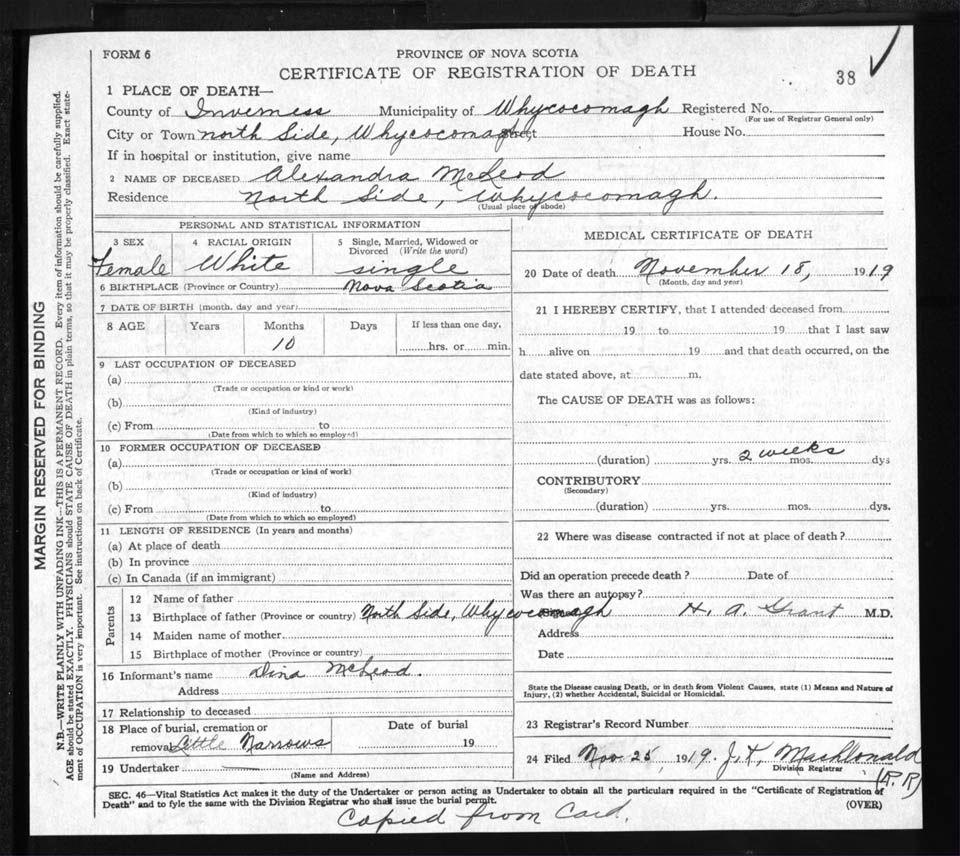 FORM 6
PROVINCE OF NOVA SCOTIA
CERTIFICATE OF REGISTRATION OF DEATH
38
1 PLACE OF DEATH—
County of Inverness Municipality of Whycocomagh Registered No.
(For use of Registrar General only)
City or Town north Side, Whycocomagh Street House No.
If in hospital or institution, give name
2 NAME OF DECEASED Alexandra McLeod
Residence North Side, Whycocomagh.
(Usual place of abode)
PERSONAL AND STATISTICAL INFORMATION
3 SEX 4 RACIAL ORIGIN 5 Single, Married, Widowed or Divorced (Write the word)
Female White single
6 BIRTHPLACE (Province or Country) Nova Scotia
7 DATE OF BIRTH (month, day and year)
8 AGE Years Months Days If less than one day,
10 hrs. or min.
9 LAST OCCUPATION OF DECEASED
(a)
(Trade or occupation or kind or work)
(b)
(Kind of industry)
(c) From to
(Date from which to which so employed)
10 FORMER OCCUPATION OF DECEASED
(a)
(Trade or occupation or kind of work)
(b)
(Kind of industry)
(c) From to
(Date from which to which so employed)
11 LENGTH OF RESIDENCE (In years and months)
(a) At place of death
(b) In province
(c) In Canada (if an immigrant)
Parents
12 Name of father
13 Birthplace of father (Province or country) North Side, Whycocomagh
14 Maiden name of mother
15 Birthplace of mother (Province or country)
16 Informant's name Dina McLeod.
Address
17 Relationship to deceased
18 Place of burial, cremation or removal Little Narrows
Date of burial
19
19 Undertaker
(Name and Address)
MEDICAL CERTIFICATE OF DEATH
20 Date of death November 18, 1919
(Month, day and year)
21 I HEREBY CERTIFY, that I attended deceased from
19 to 19 that I last saw
h alive on 19 and that death occurred, on the
date stated above, at m.
The CAUSE OF DEATH was as follows:
(duration) yrs. 2 weeks mos. dys
CONTRIBUTORY
(Secondary)
(duration) yrs. mos. dys.
22 Where was disease contracted if not at place of death?
Did an operation precede death? Date of
Was there an autopsy?
H. A. Grant M.D.
Address
Date
State the Disease causing Death, or in death from Violent Causes, state (1) Means and Nature of
Injury, (2) whether Accidental, Suicidal or Homicidal.
23 Registrar's Record Number
24 Filed Nov. 25, 1919. J. K. MacDonald
Division Registrar
SEC. 46—Vital Statistics Act makes it the duty of the Undertaker or person acting as Undertaker to obtain all the particulars required in the "Certificate of Registration of
Death" and to fyle the same with the Division Registrar who shall issue the burial permit.
(OVER)
Copied from Card.
MARGIN RESERVED FOR BINDING
N.B.—WRITE PLAINLY WITH UNFADING INK—THIS IS A PERMANENT RECORD. Every item of information should be carefully supplied.
AGE should be stated EXACTLY. PHYSICIANS should STATE CAUSE OF DEATH in plain terms, so that it may be properly classified. Exact state-
ment of OCCUPATION is very important. See instructions on back of Certificate.